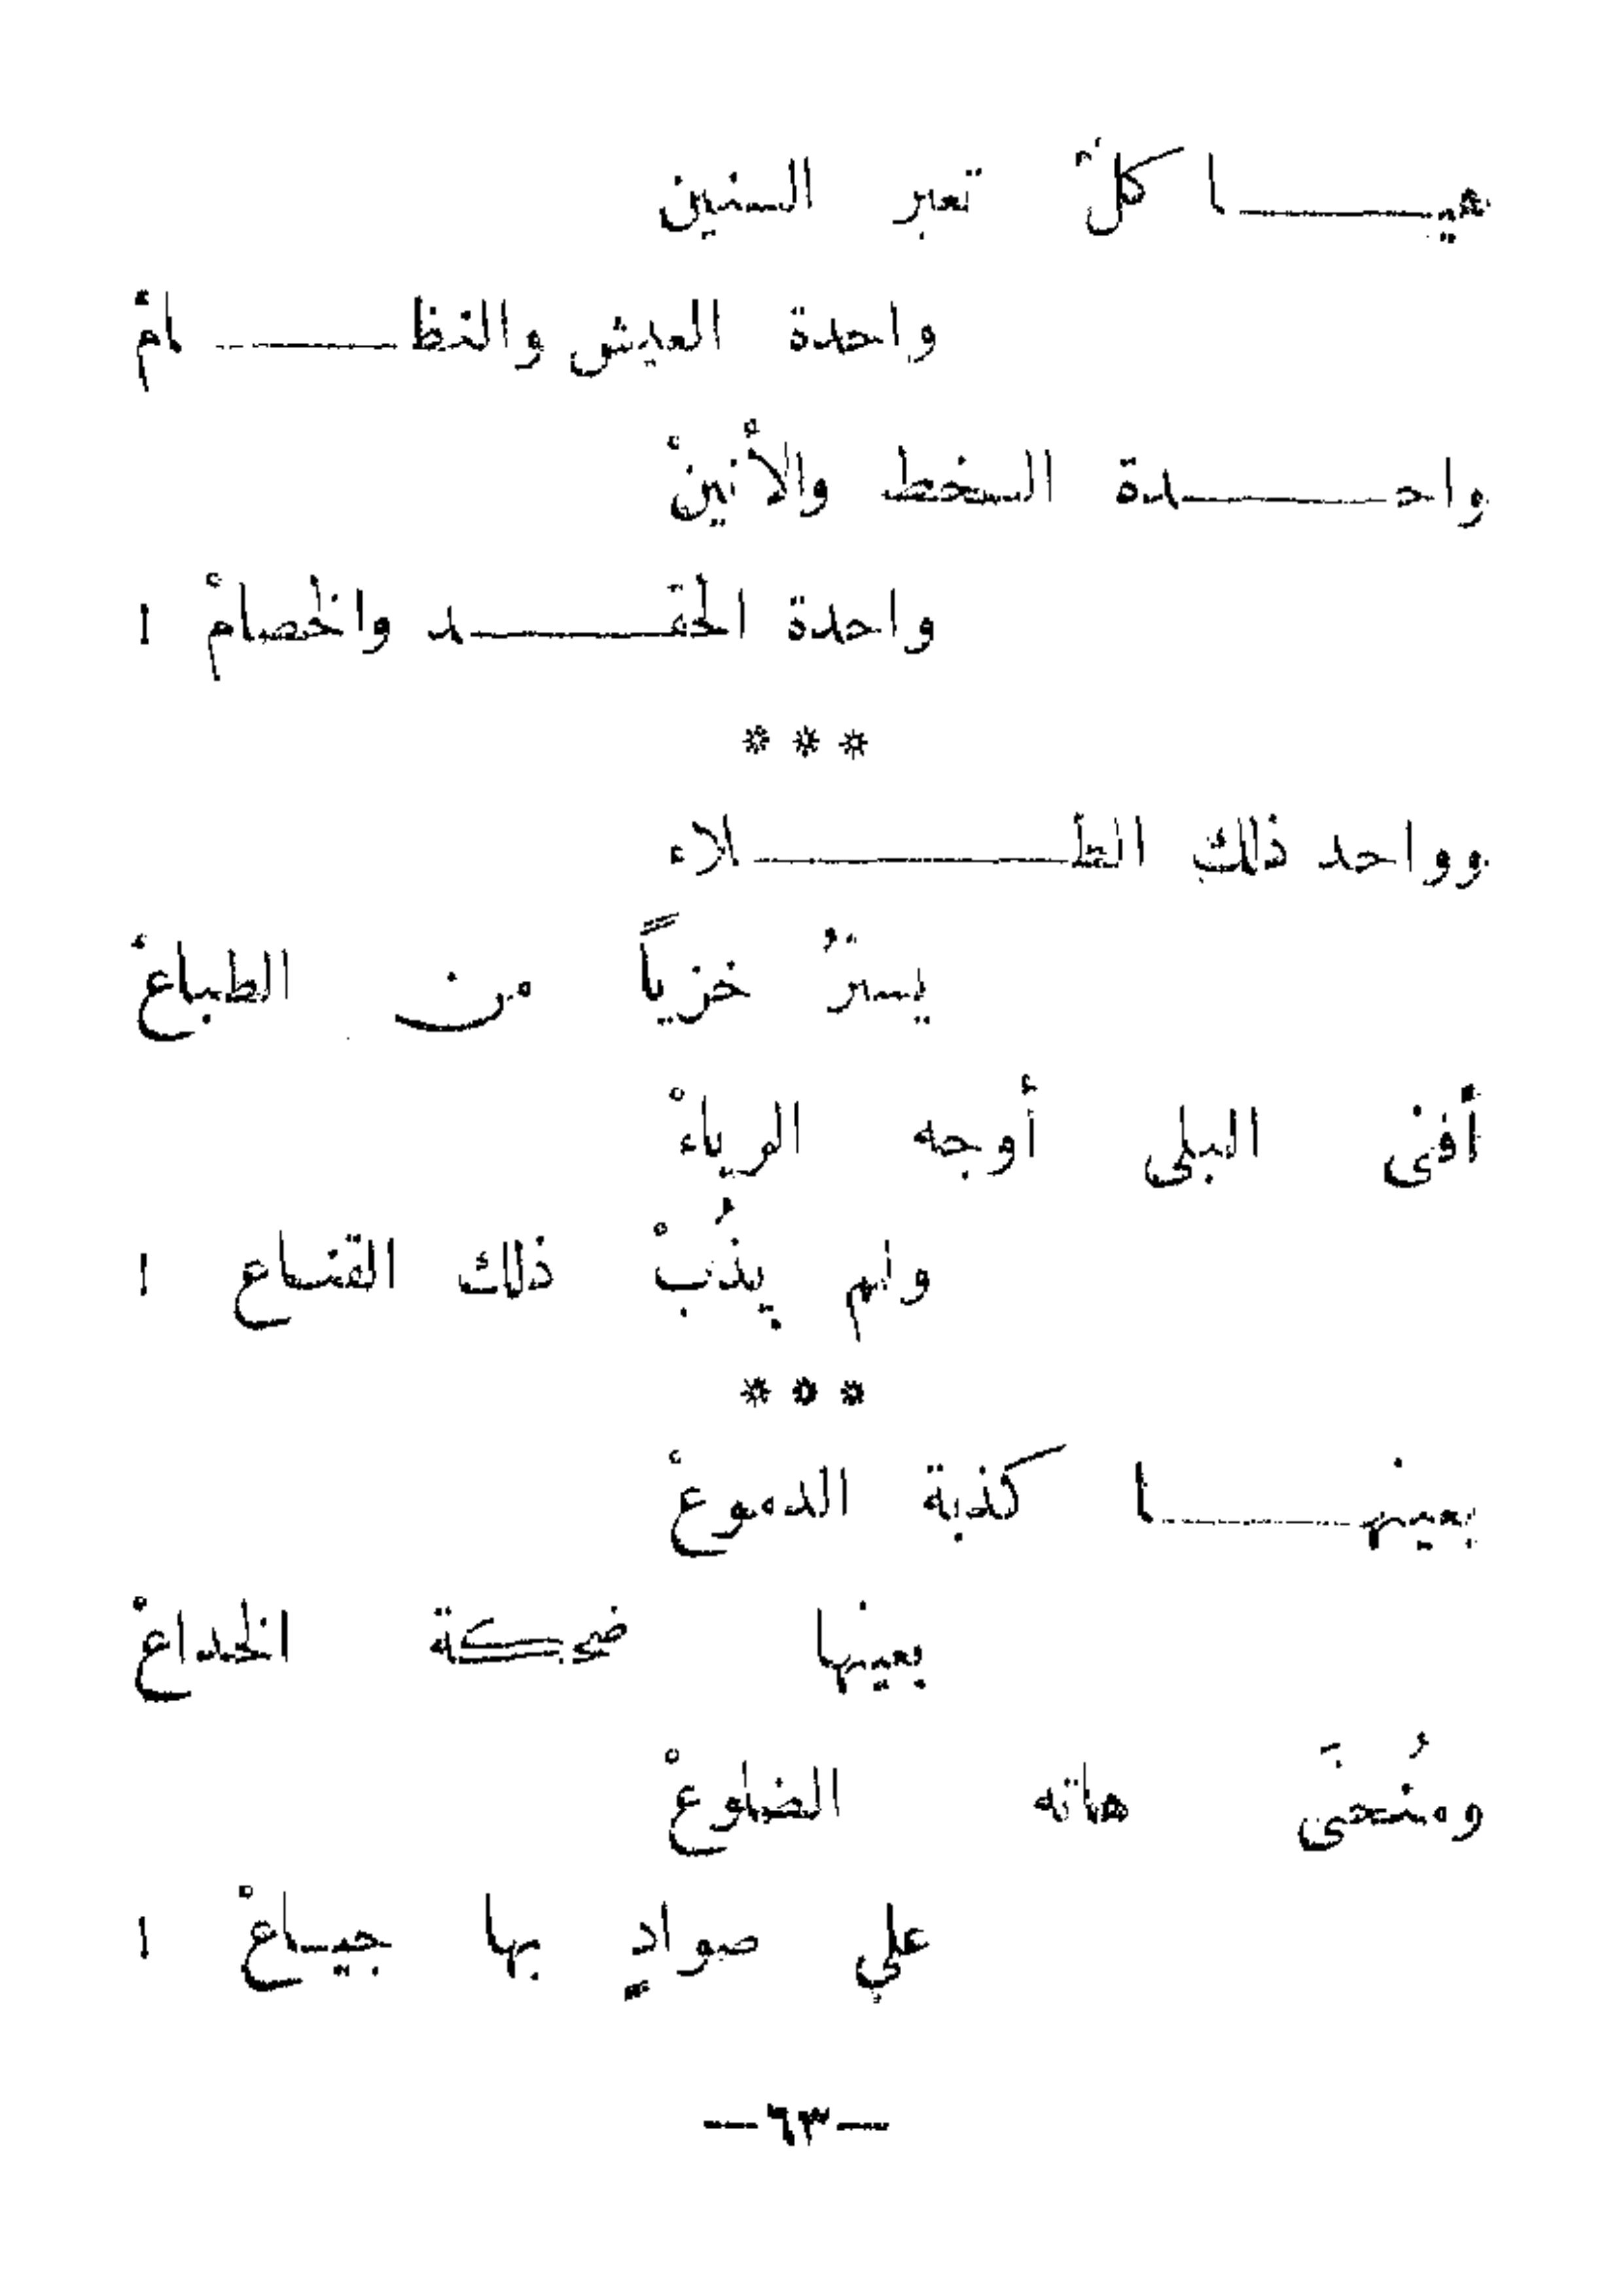 هيــــــا كلٌّ تعبر السنين
واحدة العيش والنظــــــامْ
واحــــــدة السخط والأنينْ
واحدة الحقــــــد والخصامْ !
* * *
وواحد ذلك الطــــــلاء
يسترُ خزياً من الطباعْ
أفنى البلى أوجه الرياءْ
ولم يذُبْ ذلك القنـاع !
* * *
بعينهــــــا كذبة الدموعْ
بعينها ضحكة الخداعْ
ومُنحنَى هاته الضلوعْ
على صوادٍ بها جيـاعْ !
—٦٣—